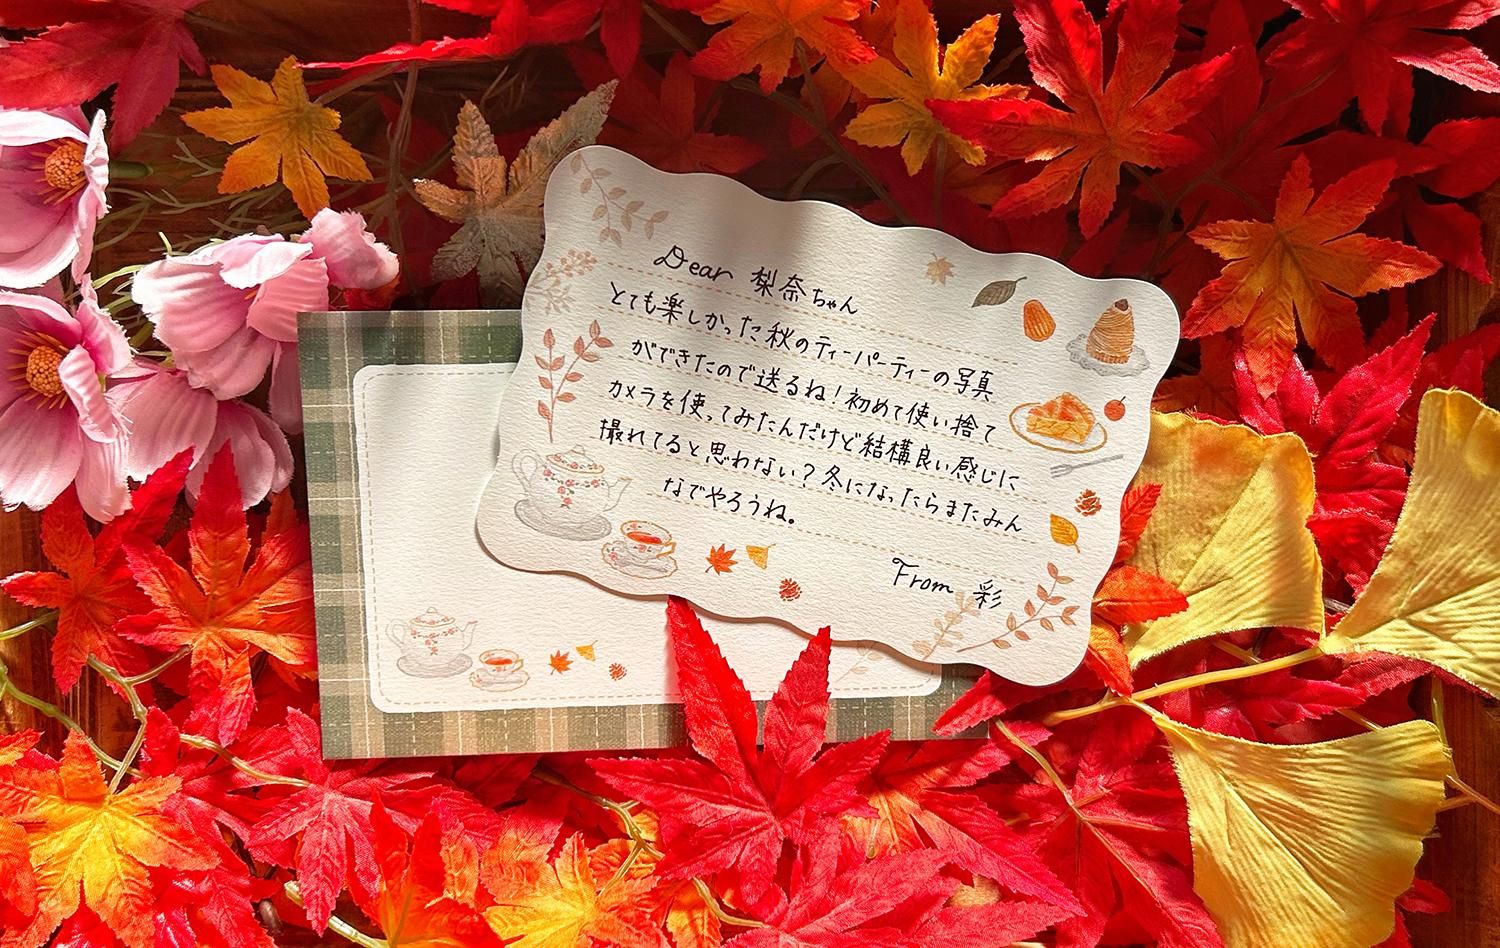 Dear 梨奈ちゃん
とても楽しかった秋のティーパーティーの写真
ができたので送るね！初めて使い捨て
カメラを使ってみたんだけど結構良い感じに
撮れてると思わない？冬になったらまたみん
なでやろうね。
From 彩